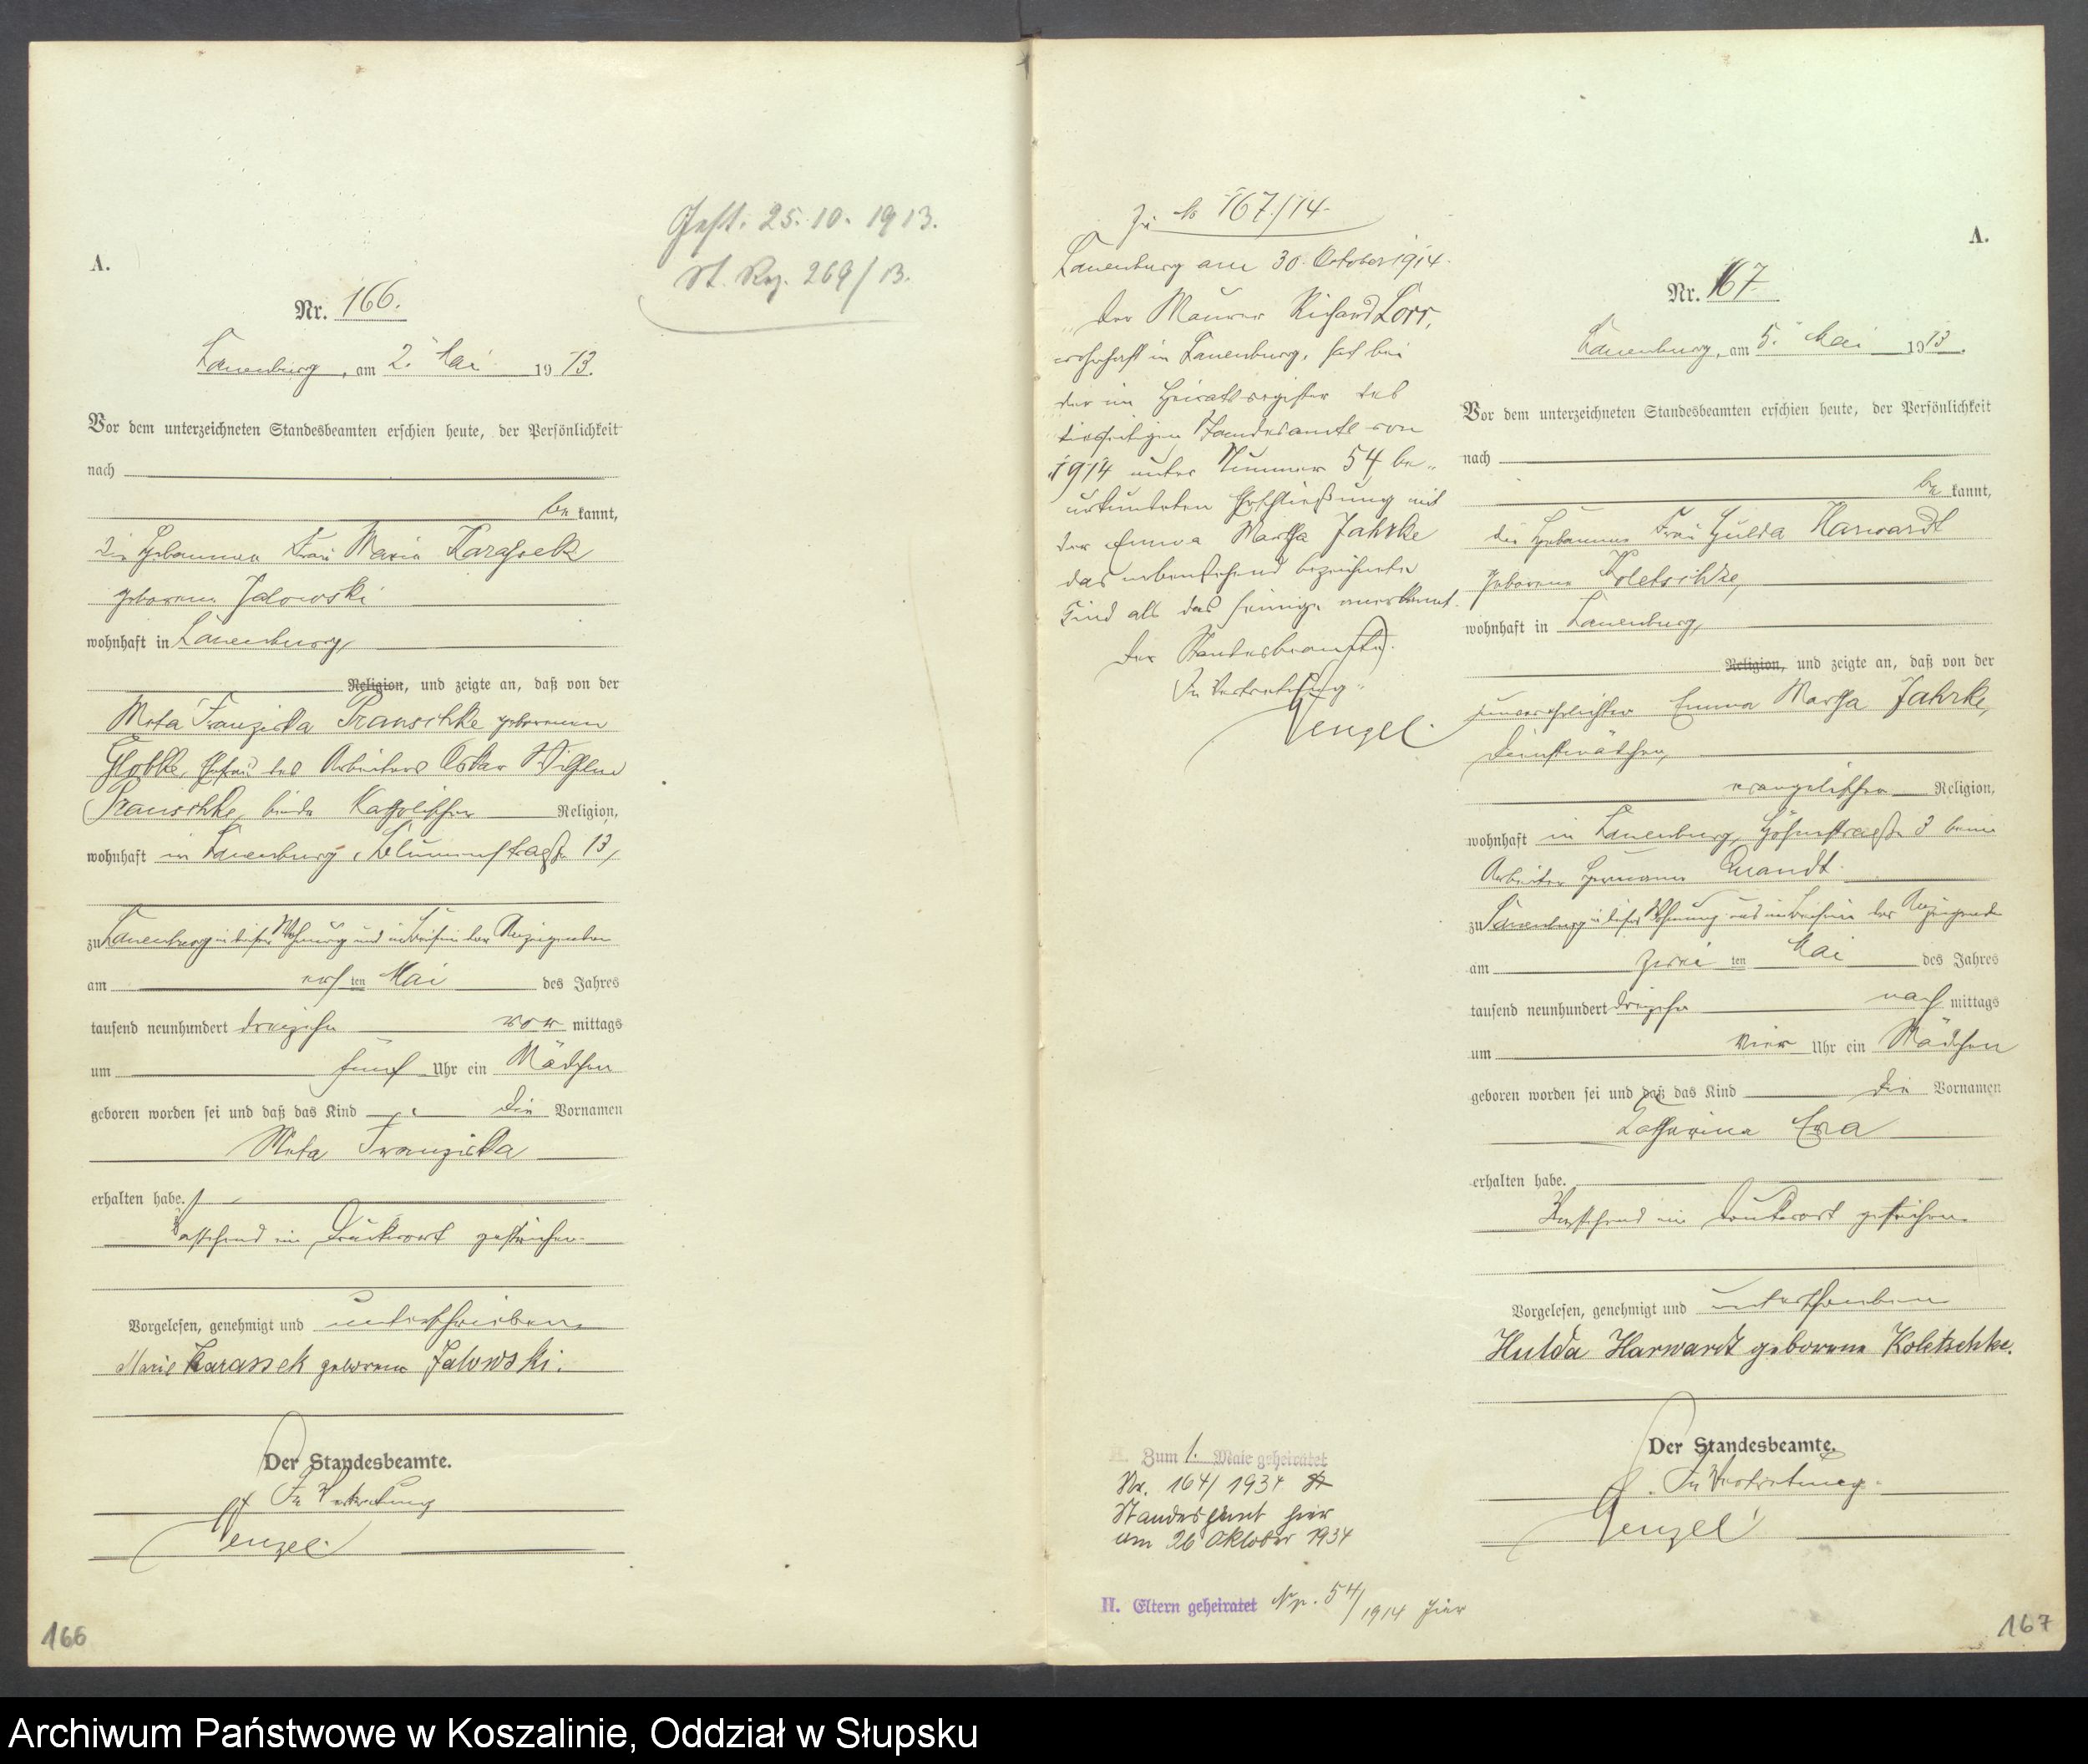 A.
Nr. 166.
Lauenburg, am 2. Mai 1913.
Vor dem unterzeichneten Standesbeamten erschien heute, der Persönlichkeit
nach
be kannt,
die Hebamme Frau Maria Karassek
geborene Jalowski
wohnhaft in Lauenburg,
Religion, und zeigte an, daß von der
Meta Franziska Pranschke geborenen
Ehefrau des Arbeiters Oskar
Pranschke, beide Katholischer Religion,
wohnhaft in Lauenburg, Blumenstraße 13,
zu Lauenburg in dieser Wohnung und im Beisein der Anzeigenden
am ersten Mai des Jahres
tausend neunhundert dreizehn vor mittags
um fünf Uhr ein Mädchen
geboren worden sei und daß das Kind die Vornamen
Meta Franziska
erhalten habe.
Vorstehend ein Druckwort gestrichen.
Vorgelesen, genehmigt und unterschrieben
Marie Karassek geborene Jalowski.
Der Standesbeamte.
In Vertretung
Wenzel.
166
Gest. 25.10.1913.
St. Reg. 269/13.
Zu No 167/14.
Lauenburg am 30. October 1914.
Der Maurer Richard Lorr,
wohnhaft in Lauenburg, hat bei
der im Heiratsregister des
diesseitigen Standesamts von
1914 unter Nummer 54 be-
urkundeten Eheschließung mit
der Emma Martha Jahrke
das nebenstehend bezeichnete
Kind als das seinige anerkannt.
Der Standesbeamte.
In Vertretung.
Wenzel.
Zum 1. Male geheiratet
Nr. 164/1934
Standesamt hier
am 26 Oktober 1934
II. Eltern geheiratet Nr. 54/1914 hier
A.
Nr. 167.
Lauenburg, am 5. Mai 1913.
Vor dem unterzeichneten Standesbeamten erschien heute, der Persönlichkeit
nach
be kannt,
die Hebamme Frau Hulda Harwardt
geborene Koletschke,
wohnhaft in Lauenburg,
Religion, und zeigte an, daß von der
unverehelichten Emma Martha Jahrke,
Dienstmädchen,
evangelischer Religion,
wohnhaft in Lauenburg, beim
Arbeiter Hermann Quandt.
zu Lauenburg in dieser Wohnung und im Beisein der Anzeigende
am zwei ten Mai des Jahres
tausend neunhundert dreizehn nach mittags
um vier Uhr ein Mädchen
geboren worden sei und daß das Kind die Vornamen
Katharina Eva
erhalten habe.
Vorstehend ein Druckwort gestrichen.
Vorgelesen, genehmigt und unterschrieben
Hulda Harwardt geborene Koletschke.
Der Standesbeamte.
In Vertretung.
Wenzel.
167
Archiwum Państwowe w Koszalinie, Oddział w Słupsku